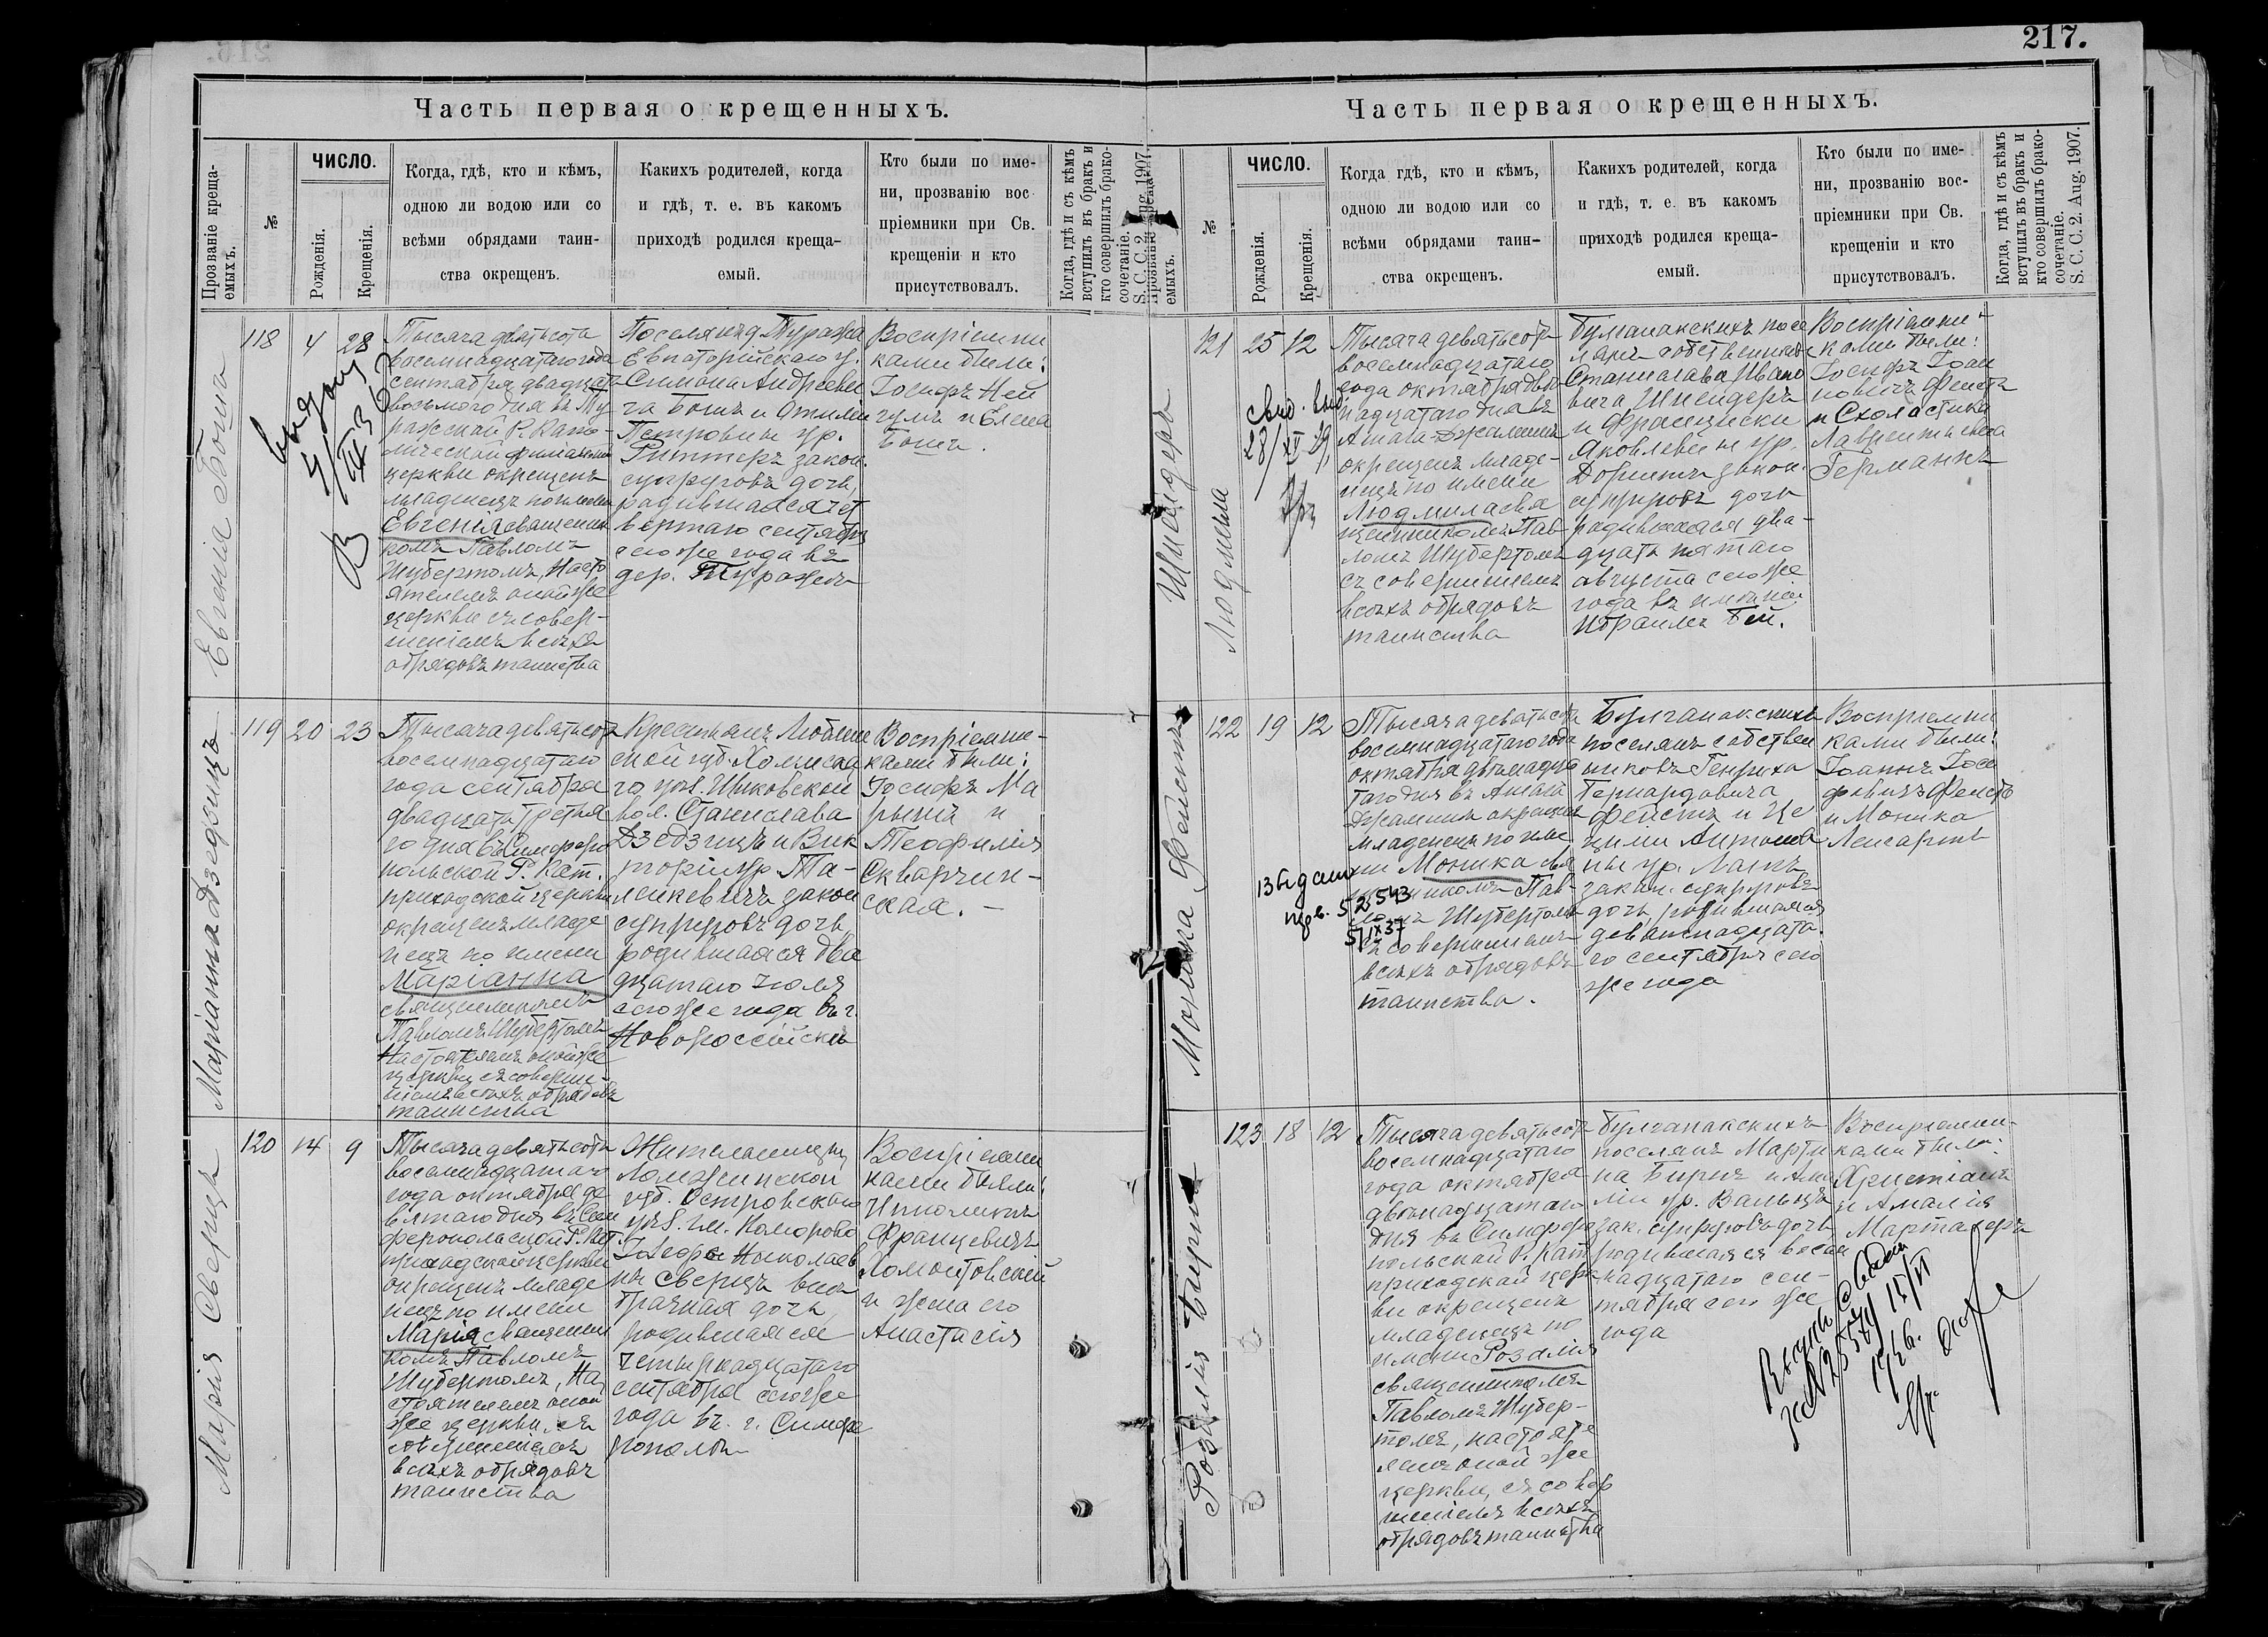 217.
Часть первая о крещенныхъ.
Прозваніе креща-
емыхъ.
№
ЧИСЛО.
Рожденія.
Крещенія.
Когда, гдѣ, кто и кѣмъ,
одною ли водою или со
всѣми обрядами таин-
ства окрещенъ.
Какихъ родителей, когда
и гдѣ, т. е. въ какомъ
приходѣ родился креща-
емый.
Кто были по име-
ни, прозванію вос
пріемники при Св.
крещеніи и кто
присутствовалъ.
Когда, гдѣ и съ кѣмъ
вступилъ въ бракъ и
кто совершилъ брако-
сочетаніе.
S. C. C. 2. Aug. 1907.
Евгенія Бошъ
118
4
28
Тысяча девятьсотъ
восемнадцатаго года
сентября двадцать
восьмого дня въ Ту
ражской Р. Като-
лической филіальной
церкви окрещенъ
младенецъ по имени
Евгенія священни
комъ Павломъ
Шубертомъ, Насто
ятелемъ оной же
церкви съ совер-
шеніемъ всѣхъ
обрядовъ таинства
Поселянъ д. Туража
Евпаторійскаго у.
Симона Андрееви
ча Бошъ и Отиліи
Петровны ур.
Риттеръ закон.
супруговъ дочь,
родившаяся чет
вертаго сентября
сего же года въ
дер. Туражъ
Воспріемни
ками были:
Іосифъ Ней
гумъ и Елена
Бошъ.
Маріанна Дзедзицъ
119
20
23
Тысяча девятьсотъ
восемнадцатаго
года сентября
двадцать третья
го дня въ Симферо
польской Р. Кат.
приходской церкви
окрещенъ младе
нецъ по имени
Маріанна
священникомъ
Павломъ Шубертомъ
Настоятелемъ оной же
церкви съ соверше-
ніемъ всѣхъ обрядовъ
таинства
Крестьянъ Люблин
ской губ. Холмска
го уѣз.
вол. Станислава
Дзедзицъ и Вик
торіи ур. Та-
ленкевичъ закон
супруговъ дочь
родившаяся два
дцатаго іюля
сего же года въ г.
Новороссійскѣ
Воспріемни-
ками были:
Іосифъ Ма
рына и
Теофилія
Скварчин-
ская. –
Марія Сверщъ
120
14
9
Тысяча девятьсотъ
восемнадцатаго
года октября де
вятаго дня въ Сим
феропольской Р. Кат.
приходской церкви
окрещенъ младе
нецъ по имени
Марія священни
комъ Павломъ
Шубертомъ, На
стоятелемъ оной
же церкви, съ
совершеніемъ
всѣхъ обрядовъ
таинства
Ломжинской
губ. Островскаго
уѣз. гм. Коморово
Николаев
ны Сверщъ внѣ
брачная дочь,
родившаяся
четырнадцатаго
сентября сего же
года въ г. Симфе
рополѣ
Воспріемни
ками были:
Францевичъ
Ломотовскій
и жена его
Анастасія
Часть первая о крещенныхъ.
емыхъ.
№
ЧИСЛО.
Рожденія.
Крещенія.
Когда гдѣ, кто и кѣмъ,
одною ли водою или со
всѣми обрядами таин-
ства окрещенъ.
Какихъ родителей, когда
и гдѣ, т. е. въ какомъ
приходѣ родился креща-
емый.
Кто были по име-
ни, прозванію вос-
пріемники при Св.
крещеніи и кто
присутствовалъ.
Когда, гдѣ и съ кѣмъ
вступилъ въ бракъ и
кто совершилъ брако-
сочетаніе.
S. C. C. 2. Aug. 1907.
Шнейдеръ
Людмила
121
25
12
Тысяча девятьсотъ
восемнадцатаго
года октября двѣ
надцатаго дня въ
окрещенъ младе-
нецъ по имени
Людмила свя
щенникомъ Пав-
ломъ Шубертомъ
съ совершеніемъ
всѣхъ обрядовъ
таинства
Булганакскихъ посе
лянъ собственник
Станислава Ивано
вича Шнейдеръ
и Франциски
Яковлевны ур.
закон.
супруговъ дочь
родившаяся два-
дцать пятаго
августа сего же
года въ имѣніи
Ибраимъ Бей.
Воспріемни-
ками были:
Іосифъ Іоан
новичъ Фейстъ
и Схоластика
Лаврентьевна
Германнъ
Моника Фейстъ
122
19
12
Тысяча девятьсотъ
восемнадцатаго года
октября двѣнадца
таго дня въ
Джаминъ окрещенъ
младенецъ по име
ни Моника свя
щенникомъ Пав-
ломъ Шубертомъ
съ совершеніемъ
всѣхъ обрядовъ
таинства.
Булганакскихъ
поселянъ собствен
никовъ Генриха
Бернардовича
Фейстъ и Це
циліи Антонов
ны ур. Лангъ
закон. супруговъ
дочь, родившаяся
девятнадцата
го сентября сего
же года
Воспріемни
ками были:
Іоаннъ Іоси
фовичъ Фейстъ
и Моника
5/IX 37
Розалія Бирнъ
123
18
12
Тысяча девятьсотъ
восемнадцатаго
года октября
двѣнадцатаго
дня въ Симферо
польской Р. Кат
приходской церк
ви окрещенъ
младенецъ по
имени Розалія
священникомъ
Павломъ Шубер-
томъ, настояте
лемъ оной же
церкви, съ совер
шеніемъ всѣхъ
обрядовъ таинства
Булганакскихъ
поселянъ Марти
на Бирнъ и Ама
ліи ур. Вальцъ
зак. супруговъ дочь
родившаяся восем
надцатаго сен-
тября сего же
года
Воспріемни-
ками были:
Христіанъ
и Амалія
Мартахеръ